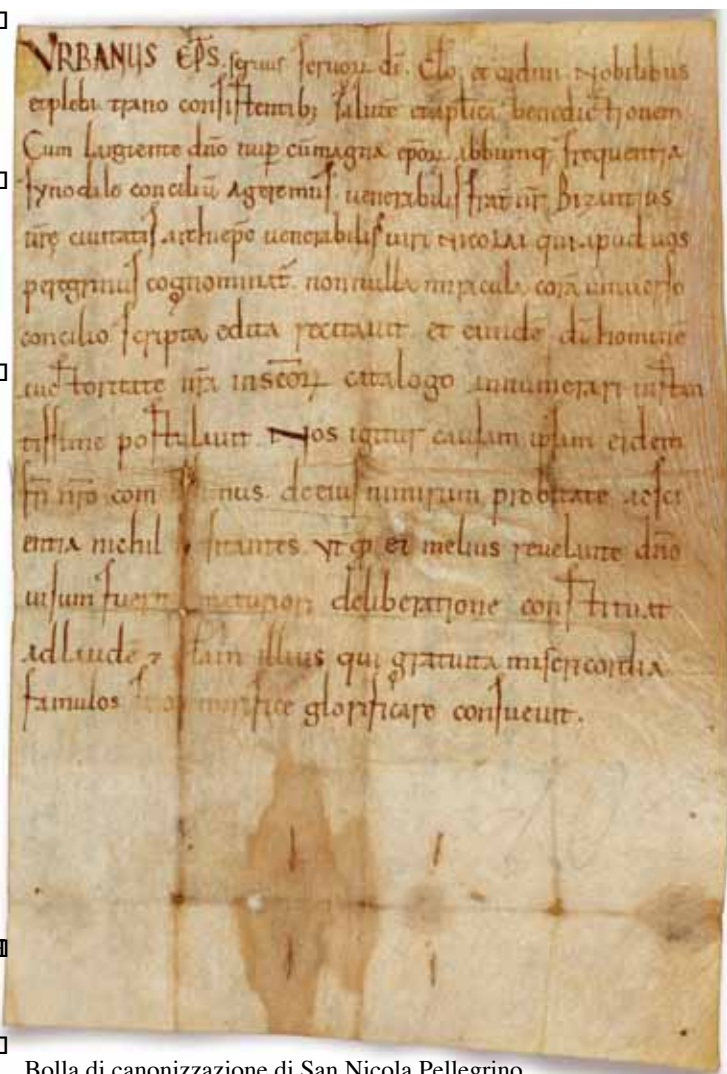 URBANUS EP̄S. seruus seruoꝝ dī. Clō. et ordini. Nobilibus
et plebi trano consistentibꝫ salutē et aplicā benedictionem
Cum largiente dño nup cū magna epōꝝ abbumqꝫ frequentia
synodale conciliū Ageremus. uenerabilis frat nr̄ Bizantius
ur̄e ciuitatis archiepc̄ uenerabilis uiri NICOLAI qui apud uos
peregrinus cognominat̄. non nulla miracula corā uniuerso
concilio scripta edita recitauit. et eundē dī hominē
auctoritate nr̄a in sc̄oꝝ catalogo annumerari instan
tissime postulauit. Nos igitur causam ipsam eidem
fr̄i nr̄o com nus. de eius nimirum probitate ac sci
entia nichil sitantes. Vt qd̄ ei melius reuelante dño
uisum fuerit maturiori deliberatione constituat
ad laudē ⁊ illius qui gratuita misericordia
famulos suos mirifice glorificare consueuit.
Bolla di canonizzazione di San Nicola Pellegrino